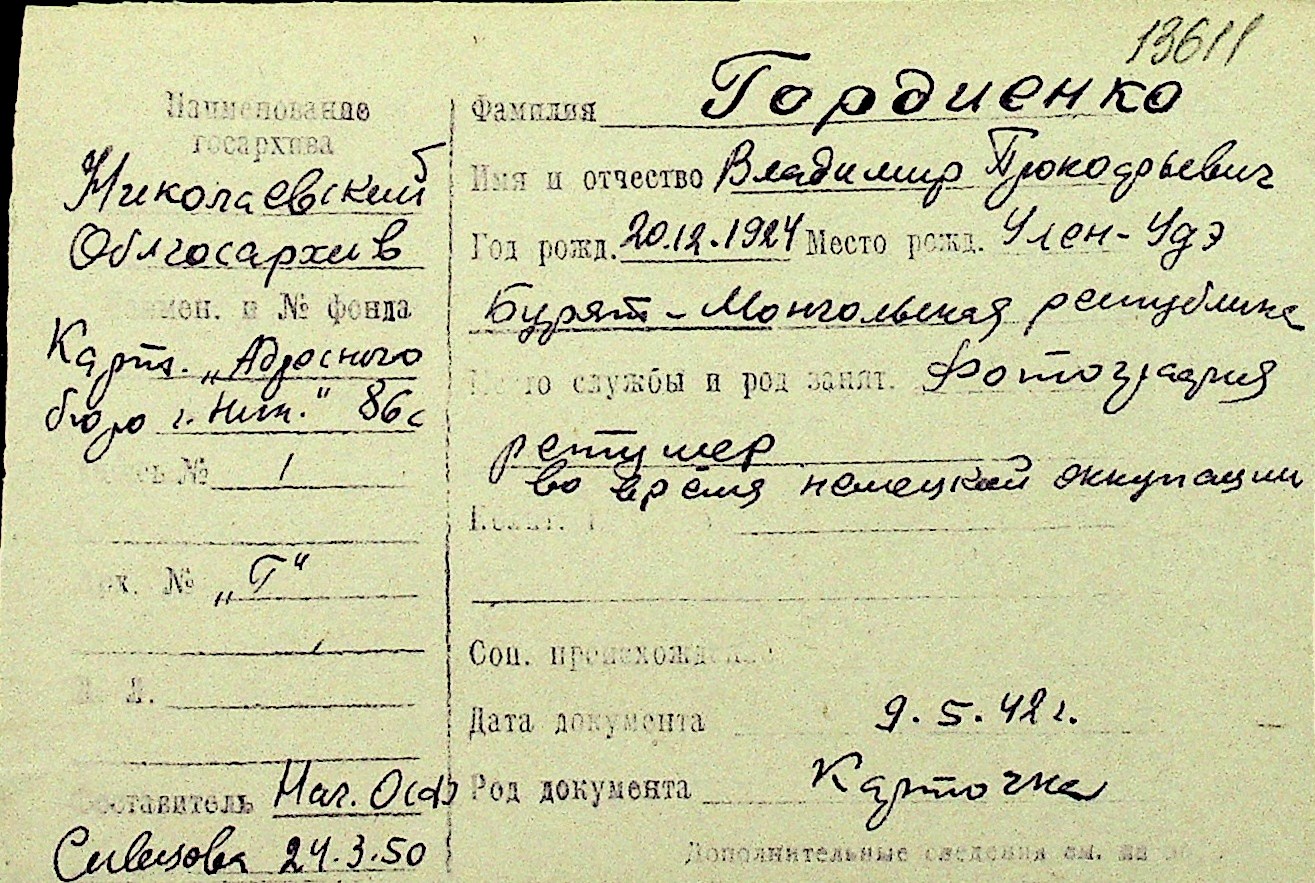 13611
Наименование
госархива
Николаевский
Облгосархив
Наимен. и № фонда
Карт. „Адресного
бюро г. Ник." 86с
Опись № 1
Арх. № „Г"
Составитель Нач. Осф
24.3.50
Фамилия Гордиенко
Имя и отчество Владимир Прокофьевич
Год рожд. 20.12.1924 Место рожд. Улен-Удэ
Бурят-Монгольская республика
Место службы и род занят. Фотография
ретушер
во время немецкой оккупации
Соц. происхождение
Дата документа 9.5.42 г.
Род документа Карточка
Дополнительные сведения см. на об.